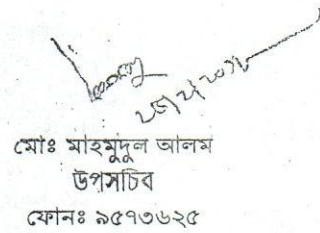 মোঃ মাহমুদুল আলম
উপসচিব
ফোনঃ ৯৫৭৩৬২৫